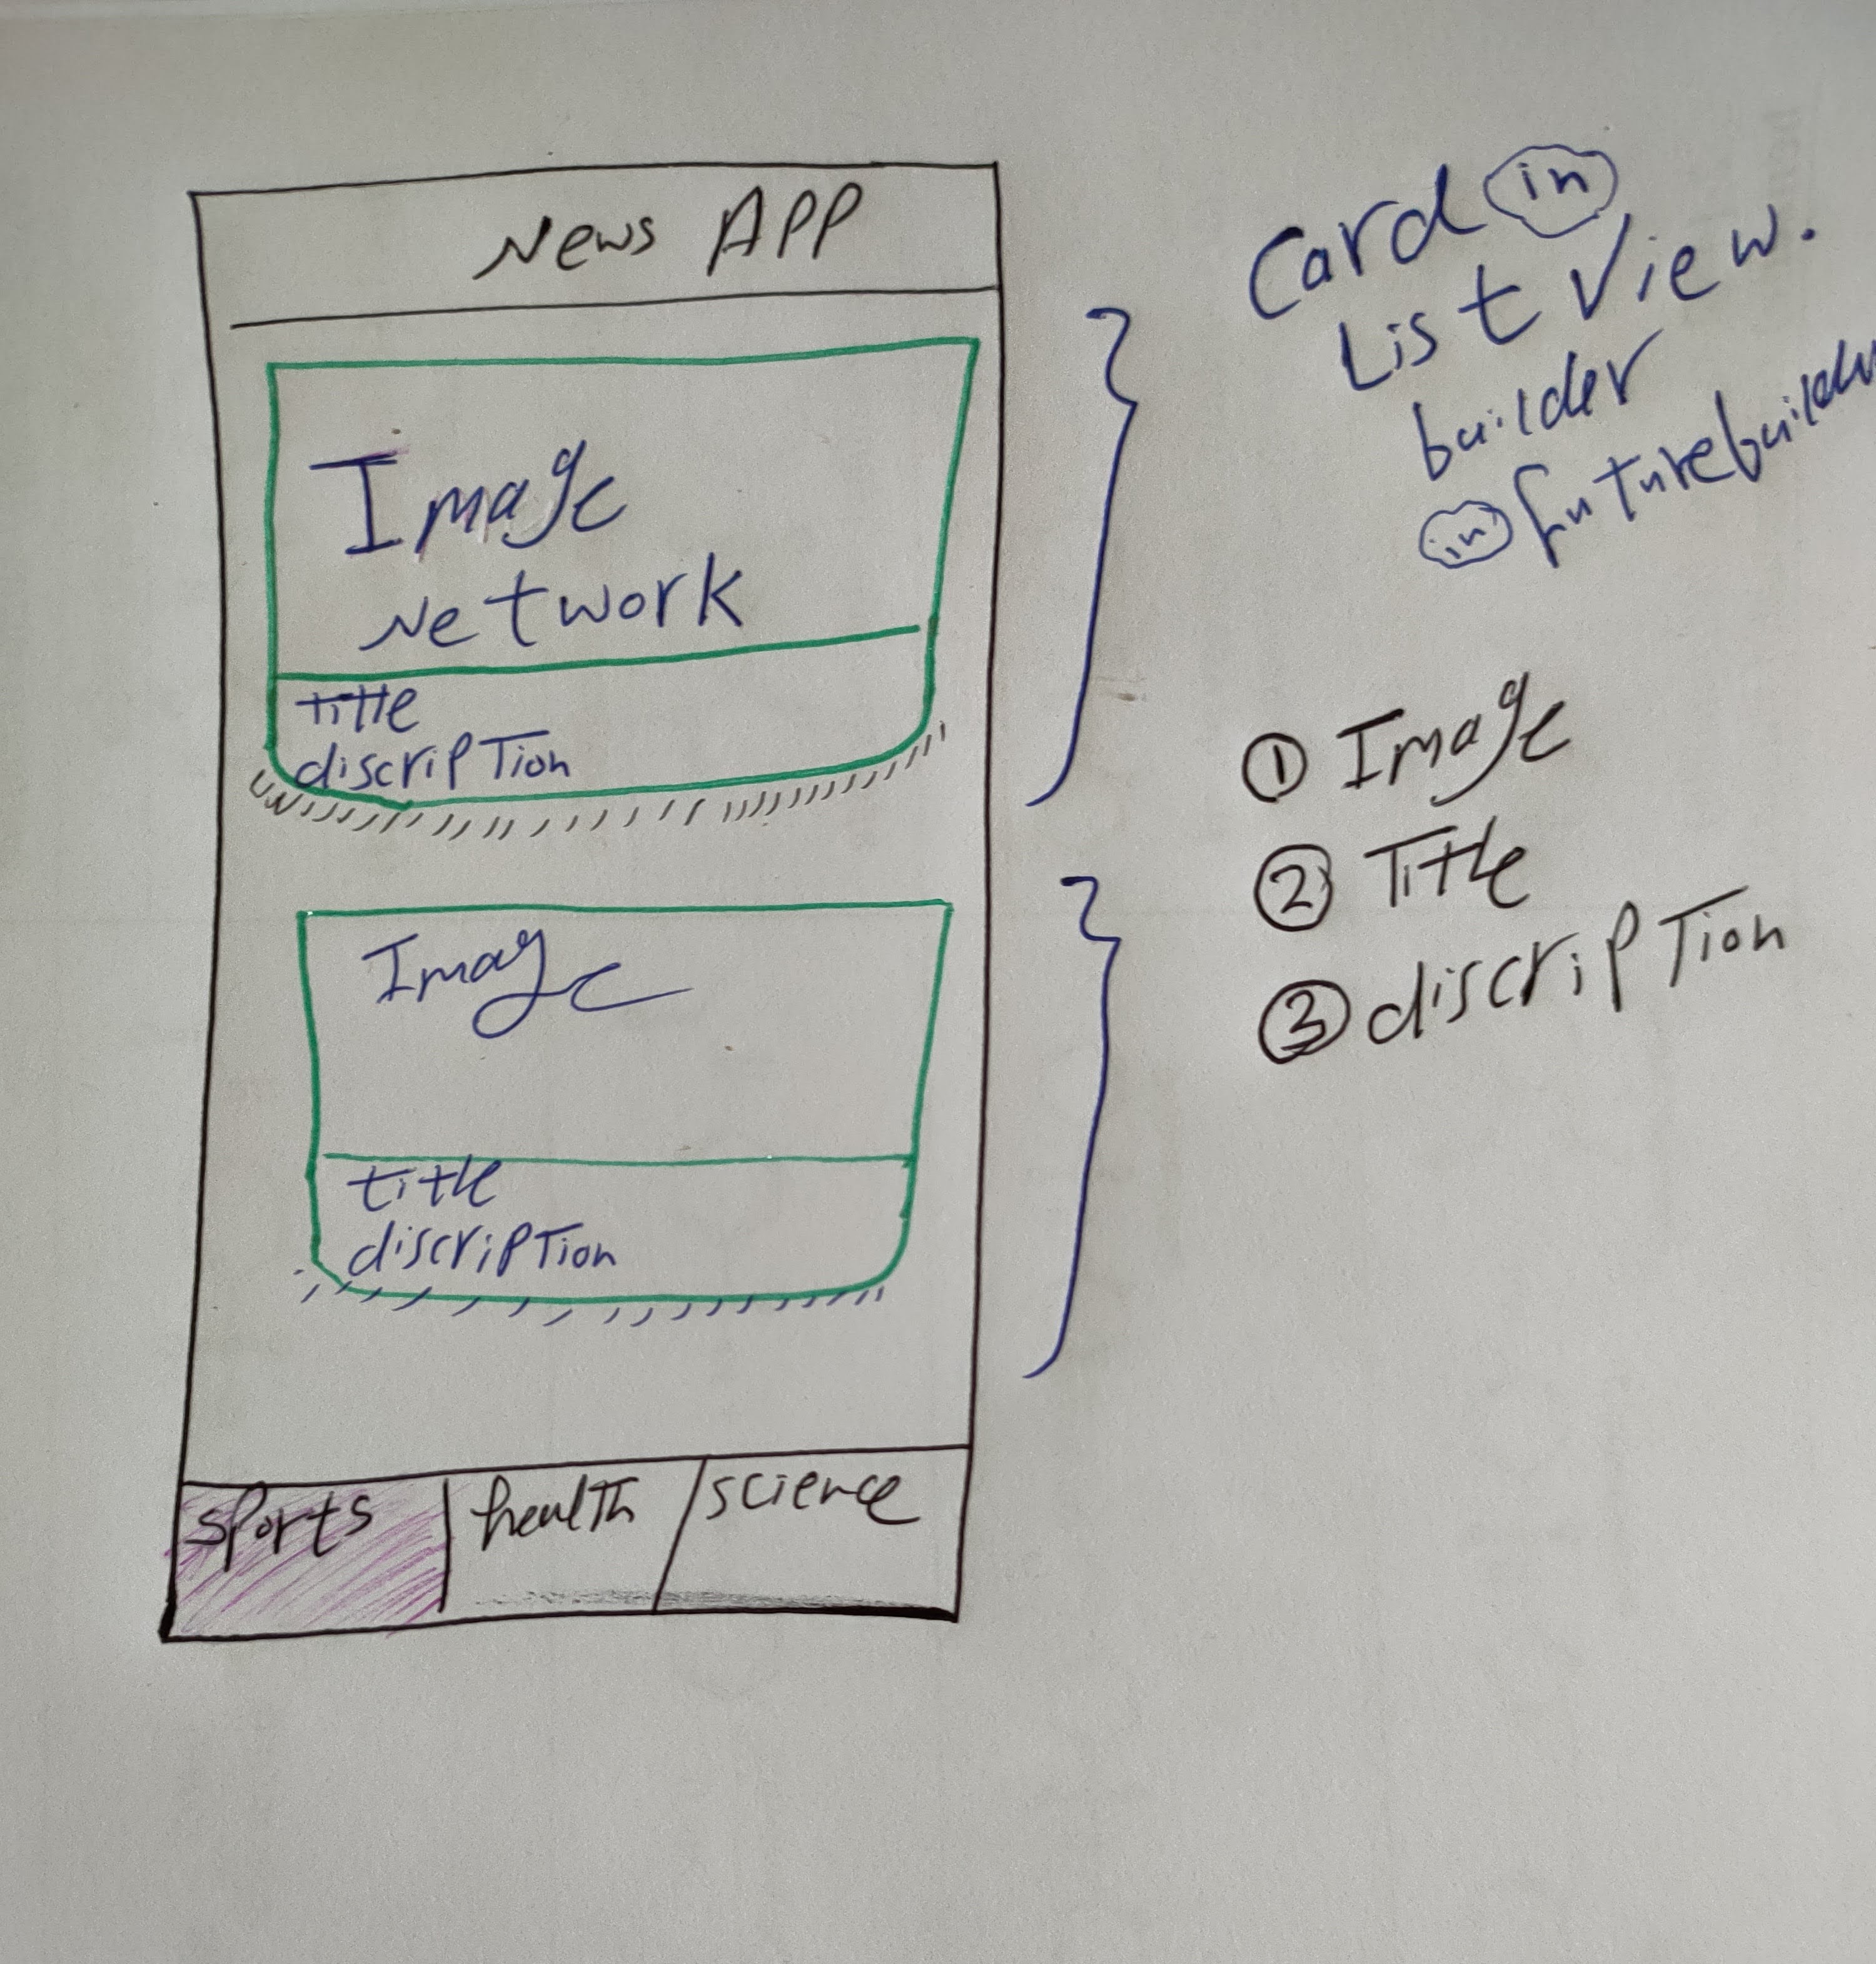 News APP
Image
Network
title
discription
Image
title
discription
sports
health
science
Card in
List View.
builder
in futurebuilder
① Image
② Title
③ discription